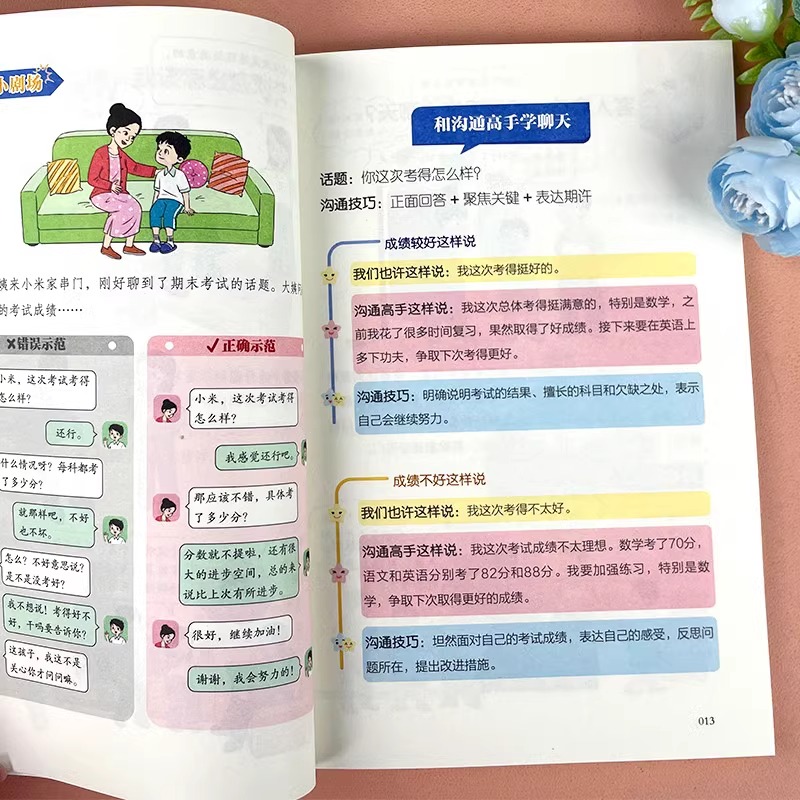 小剧场
姨来小米家串门，刚好聊到了期末考试的话题。大姨问
的考试成绩……
✗错误示范
小米，这次考试考得
怎么样？
还行。
什么情况呀？每科都考
了多少分？
就那样吧，不好
也不坏。
怎么？不好意思说？
是不是没考好？
我不想说！考得好不
好，干吗要告诉你？
这孩子，我这不是
关心你才问问嘛。
✓正确示范
小米，这次考试考得
怎么样？
我感觉还行吧。
那应该不错，具体考
了多少分？
分数就不提啦，还有很
大的进步空间，总的来
说比上次有所进步。
很好，继续加油！
谢谢，我会努力的！
和沟通高手学聊天
话题：你这次考得怎么样？
沟通技巧：正面回答+聚焦关键+表达期许
成绩较好这样说
我们也许这样说：我这次考得挺好的。
沟通高手这样说：我这次总体考得挺满意的，特别是数学，之
前我花了很多时间复习，果然取得了好成绩。接下来要在英语上
多下功夫，争取下次考得更好。
沟通技巧：明确说明考试的结果、擅长的科目和欠缺之处，表示
自己会继续努力。
成绩不好这样说
我们也许这样说：我这次考得不太好。
沟通高手这样说：我这次考试成绩不太理想。数学考了70分，
语文和英语分别考了82分和88分。我要加强练习，特别是数
学，争取下次取得更好的成绩。
沟通技巧：坦然面对自己的考试成绩，表达自己的感受，反思问
题所在，提出改进措施。
013